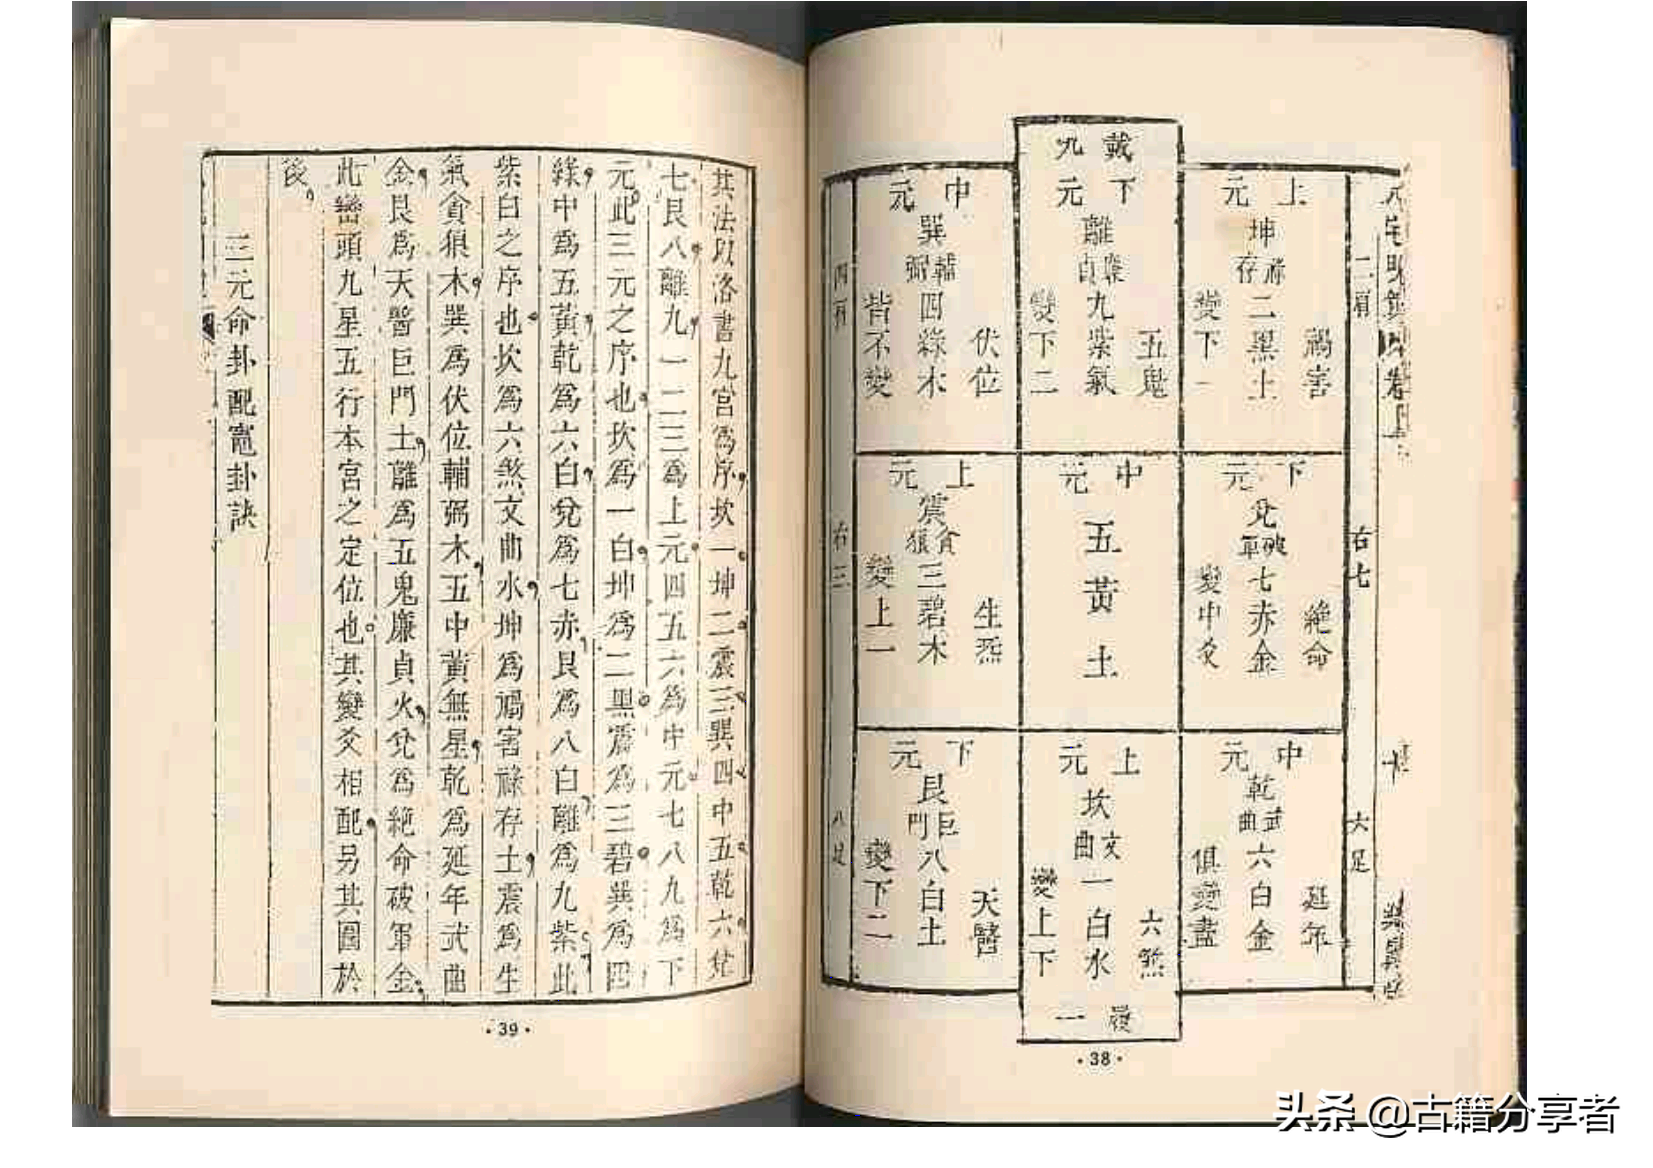 八宅明鏡
卷上
二肩
右七
六足
戴九
履一
上元
坤
祿存
二黑土
禍害
變下一
下元
離
廉貞
九紫氣
五鬼
變下二
中元
巽
輔弼
四綠木
伏位
皆不變
四肩
下元
兌
破軍
七赤金
絕命
變中爻
中元
五黃土
上元
震
貪狼
三碧木
生炁
變上一
右三
中元
乾
武曲
六白金
延年
俱變盡
上元
坎
文曲
一白水
六煞
變上下
下元
艮
巨門
八白土
天醫
變下二
八足
·38·
其法以洛書九宮爲序坎一坤二震三巽四中五乾六兌
七艮八離九一二三爲上元四五六爲中元七八九爲下
元此三元之序也坎爲一白坤爲二黑震爲三碧巽爲四
綠中爲五黃乾爲六白兌爲七赤艮爲八白離爲九紫此
紫白之序也坎爲六煞文曲水坤爲禍害祿存土震爲生
氣貪狼木巽爲伏位輔弼木五中黃無星乾爲延年武曲
金艮爲天醫巨門土離爲五鬼廉貞火兌爲絕命破軍金
此巒頭九星五行本宮之定位也其變爻相配另具圖於
後
三元命卦配竈卦訣
·39·
头条 @古籍分享者